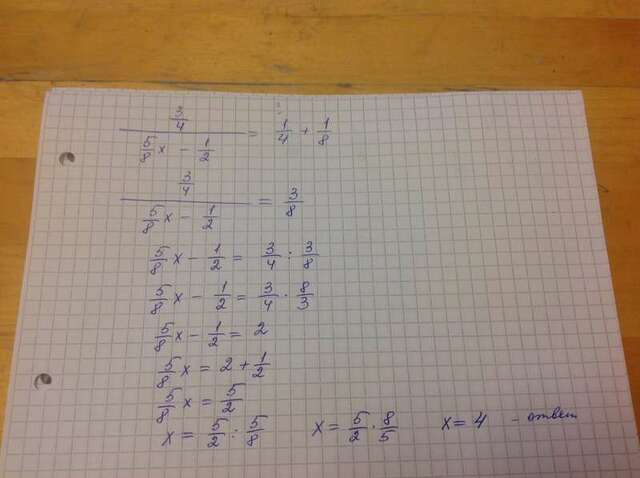 (3/4)/(5/8 x - 1/2) = 1/4 + 1/8
(3/4)/(5/8 x - 1/2) = 3/8
5/8 x - 1/2 = 3/4 : 3/8
5/8 x - 1/2 = 3/4 · 8/3
5/8 x - 1/2 = 2
5/8 x = 2 + 1/2
5/8 x = 5/2
x = 5/2 : 5/8 x = 5/2 · 8/5 x = 4 - ответ